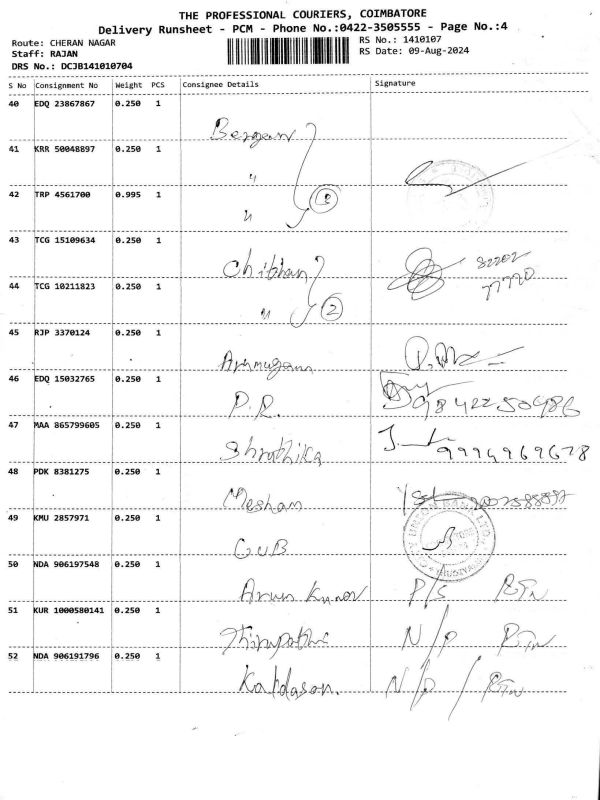 THE PROFESSIONAL COURIERS, COIMBATORE
Delivery Runsheet - PCM - Phone No.:0422-3505555 - Page No.:4
Route: CHERAN NAGAR
RS No.: 1410107
Staff: RAJAN
RS Date: 09-Aug-2024
DRS No.: DCJB141010704
S No Consignment No Weight PCS Consignee Details Signature
40 EDQ 23867867 0.250 1
Bergan
41 KRR 50048897 0.250 1
"
42 TRP 4561700 0.995 1
"
43 TCG 15109634 0.250 1
Chibhan 82202
77770
44 TCG 10211823 0.250 1
" 2
45 RJP 3370124 0.250 1
Arumugam
46 EDQ 15032765 0.250 1
P.R. 9842250486
47 MAA 865799605 0.250 1
Shrathika 9994969678
48 PDK 8381275 0.250 1
Mesham
49 KMU 2857971 0.250 1
CUB UNION BANK LTD.
50 NDA 906197548 0.250 1
Arun Kumar P/S RTN
51 KUR 1000580141 0.250 1
Thirupathi N/P RTN
52 NDA 906191796 0.250 1
Kalidasan. N/P / RTN